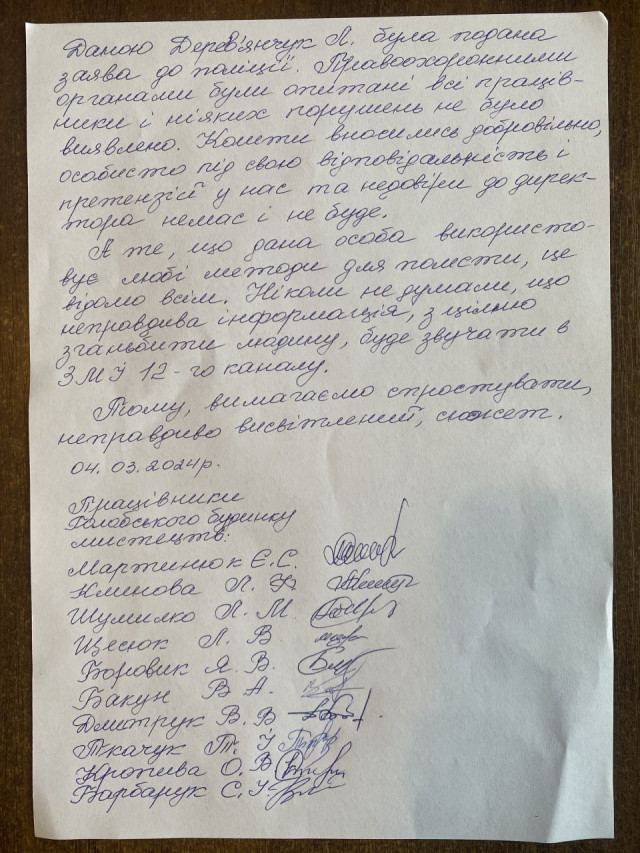 Даною Дерев'янчук Л. була подана
заява до поліції. Правоохоронними
органами були опитані всі праців-
ники і ніяких порушень не було
виявлено. Кошти вносились добровільно,
особисто під свою відповідальність і
претензій у нас та недовіри до дирек-
тора немає і не буде.
А те, що дана особа використо-
вує любі методи для помсти, це
відомо всім. Ніколи не думали, що
неправдива інформація, з цілью
зганьбити людину, буде звучати в
ЗМІ 12-го каналу.
Тому, вимагаємо спростувати,
неправдиво висвітлений, сюжет.
04.03.2024р.
Працівники
Голобського будинку
мистецтв:
Мартинюк Є.С.
Климова Л.
Шумилко Л. М.
Щесюк Л. В.
Боровик Я. В.
Бакун В А.
Дмитрук В. В
Ткачук Т. І
Кропива О. В
Барбарук С. І.